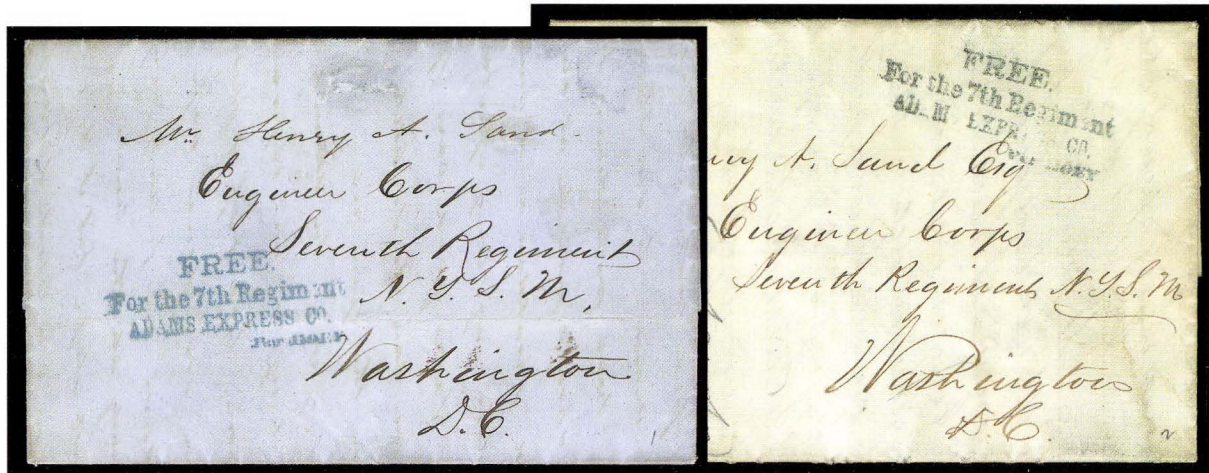 Mr. Henry A. Sand.
Engineer Corps
Seventh Regiment
N. Y. S. M,
Washington
D. C.
FREE.
For the 7th Regiment
ADAMS EXPRESS CO.
1
FREE.
For the 7th Regiment
ADAMS EXPRESS CO.
A. Sand Esq
Engineer Corps
Seventh Regiment N. Y. S. M
Washington
D. C.
2